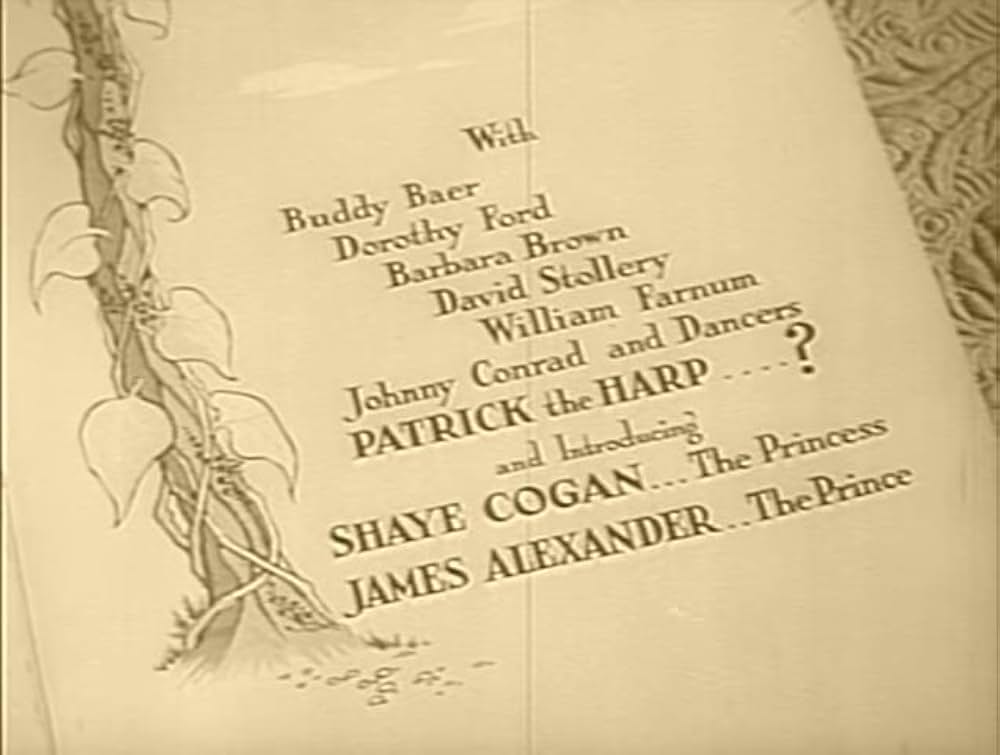 With
Buddy Baer
Dorothy Ford
Barbara Brown
David Stollery
William Farnum
Johnny Conrad and Dancers
PATRICK the HARP ....?
and Introducing
SHAYE COGAN... The Princess
JAMES ALEXANDER.. The Prince